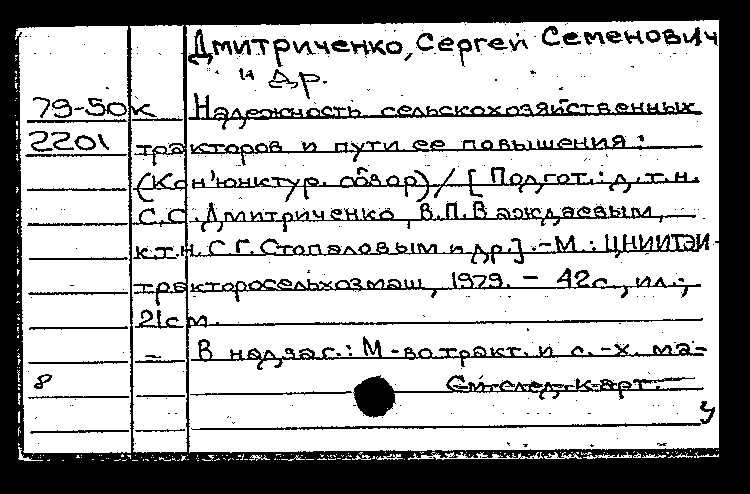 Дмитриченко, Сергей Семенович
и др.
79-50к Надежность сельскохозяйственных
2201 тракторов и пути ее повышения:
(Кон'юнктур. обзор) / [Подгот.: д.т.н.
С.С. Дмитриченко, В.П. Важдаевым,
к.т.н. С.Г. Стопаловым и др.]. - М.: ЦНИИТЭИ-
тракторосельхозмаш, 1979. - 42с., ил.;
21см.
- В надзаг.: М-во тракт. и с.-х. ма-
8 См. след. карт.
У